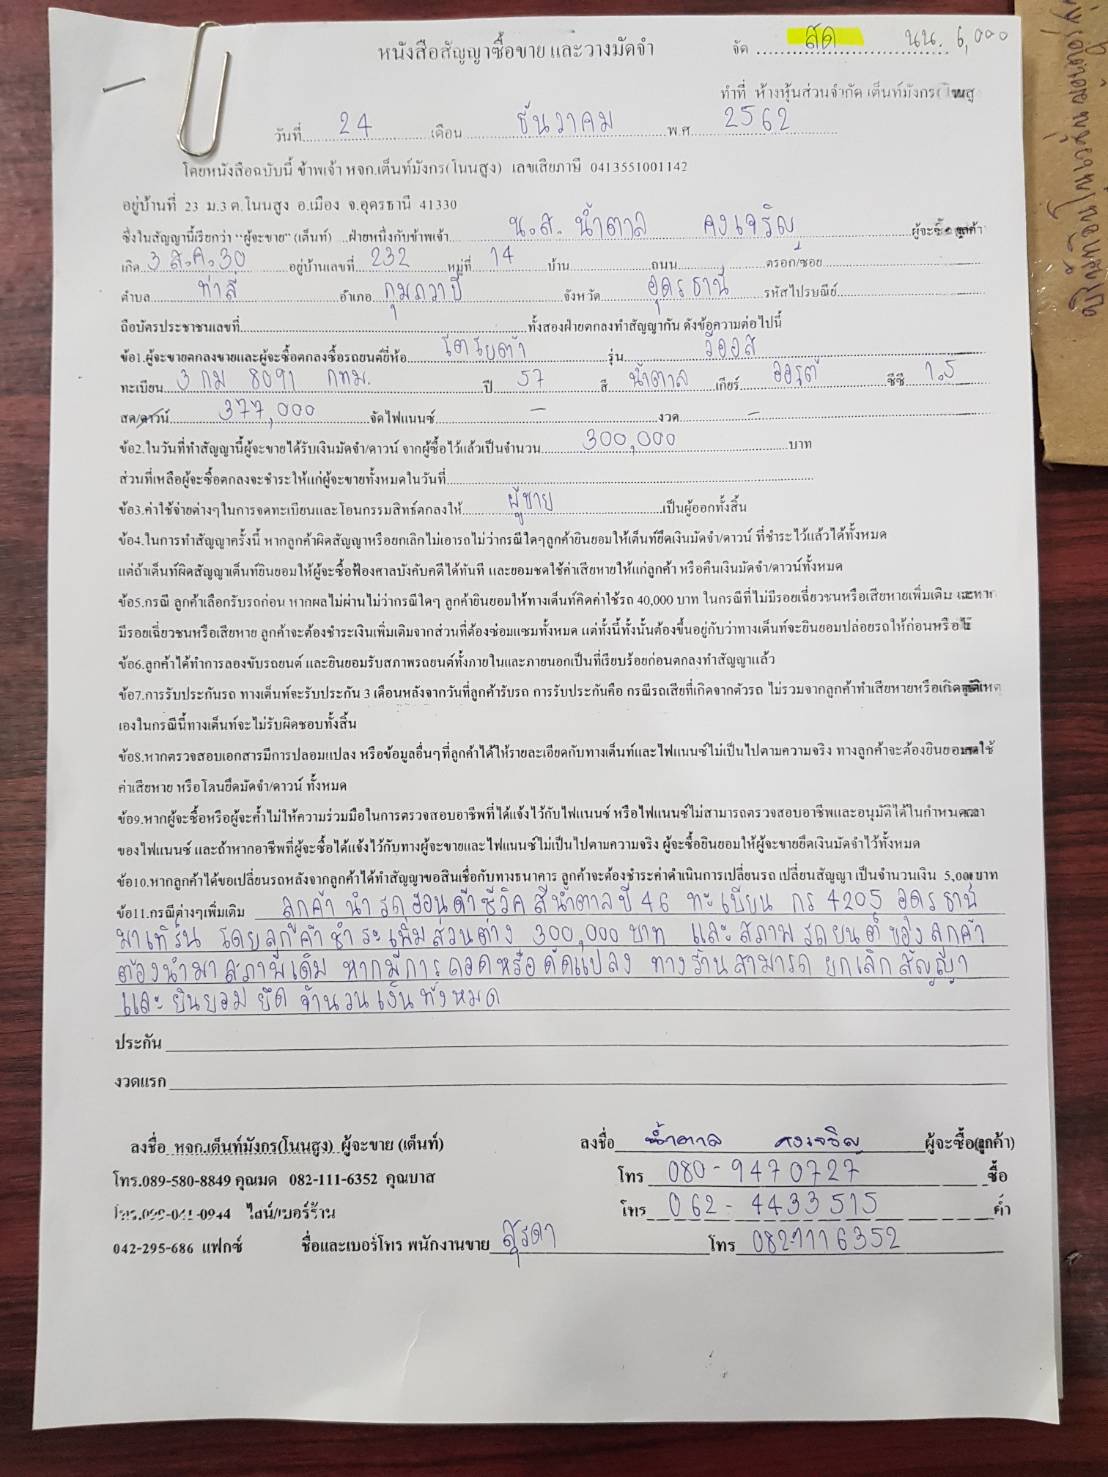 หนังสือสัญญาซื้อขาย และวางมัดจำ
จัด สด นน. 6,000
ทำที่ ห้างหุ้นส่วนจำกัด เต็นท์มังกร
วันที่ 24 เดือน ธันวาคม พ.ศ 2562
โดยหนังสือฉบับนี้ ข้าพเจ้า หจก.เต็นท์มังกร(โนนสูง) เลขเสียภาษี 0413551001142
อยู่บ้านที่ 23 ม.3 ต.โนนสูง อ.เมือง จ.อุดรธานี 41330
ซึ่งในสัญญานี้เรียกว่า "ผู้จะขาย" (เต็นท์) ...ฝ่ายหนึ่งกับข้าพเจ้า น.ส. น้ำตาล คงเจริญ ผู้จะซื้อ ลูกค้า
เกิด 3 ส.ค. 30 อยู่บ้านเลขที่ 232 หมู่ที่ 14 บ้าน ถนน ตรอก/ซอย
ตำบล ท่าลี่ อำเภอ กุมภวาปี จังหวัด อุดรธานี รหัสไปรษณีย์
ถือบัตรประชาชนเลขที่ ทั้งสองฝ่ายตกลงทำสัญญากัน ดังข้อความต่อไปนี้
ข้อ1.ผู้จะขายตกลงขายและผู้จะซื้อตกลงซื้อรถยนต์ยี่ห้อ โตโยต้า รุ่น วีออส
ทะเบียน 3 กม 8091 กทม. ปี 57 สี น้ำตาล เกียร์ ออโต้ ซีซี 1.5
สด/ดาวน์ 377,000 จัดไฟแนนซ์ - งวด -
ข้อ2.ในวันที่ทำสัญญานี้ผู้จะขายได้รับเงินมัดจำ/ดาวน์ จากผู้ซื้อไว้แล้วเป็นจำนวน 300,000 บาท
ส่วนที่เหลือผู้จะซื้อตกลงจะชำระให้แก่ผู้จะขายทั้งหมดในวันที่
ข้อ3.ค่าใช้จ่ายต่างๆในการจดทะเบียนและโอนกรรมสิทธ์ตกลงให้ ผู้ขาย เป็นผู้ออกทั้งสิ้น
ข้อ4.ในการทำสัญญาครั้งนี้ หากลูกค้าผิดสัญญาหรือยกเลิกไม่เอารถไม่ว่ากรณีใดๆลูกค้ายินยอมให้เต็นท์ยึดเงินมัดจำ/ดาวน์ ที่ชำระไว้แล้วได้ทั้งหมด
แต่ถ้าเต็นท์ผิดสัญญาเต็นท์ยินยอมให้ผู้จะซื้อฟ้องศาลบังคับคดีได้ทันที และยอมชดใช้ค่าเสียหายให้แก่ลูกค้า หรือคืนเงินมัดจำ/ดาวน์ทั้งหมด
ข้อ5.กรณี ลูกค้าเลือกรับรถก่อน หากผลไม่ผ่านไม่ว่ากรณีใดๆ ลูกค้ายินยอมให้ทางเต็นท์คิดค่าใช้รถ 40,000 บาท ในกรณีที่ไม่มีรอยเฉี่ยวชนหรือเสียหายเพิ่มเติม และหาก
มีรอยเฉี่ยวชนหรือเสียหาย ลูกค้าจะต้องชำระเงินเพิ่มเติมจากส่วนที่ต้องซ่อมแซมทั้งหมด แต่ทั้งนี้ทั้งนั้นต้องขึ้นอยู่กับว่าทางเต็นท์จะยินยอมปล่อยรถให้ก่อนหรือไม่
ข้อ6.ลูกค้าได้ทำการลองขับรถยนต์ และยินยอมรับสภาพรถยนต์ทั้งภายในและภายนอกเป็นที่เรียบร้อยก่อนตกลงทำสัญญาแล้ว
ข้อ7.การรับประกันรถ ทางเต็นท์จะรับประกัน 3 เดือนหลังจากวันที่ลูกค้ารับรถ การรับประกันคือ กรณีรถเสียที่เกิดจากตัวรถ ไม่รวมจากลูกค้าทำเสียหายหรือเกิดอุบัติเหตุ
เองในกรณีนี้ทางเต็นท์จะไม่รับผิดชอบทั้งสิ้น
ข้อ8.หากตรวจสอบเอกสารมีการปลอมแปลง หรือข้อมูลอื่นๆที่ลูกค้าได้ให้รายละเอียดกับทางเต็นท์และไฟแนนซ์ไม่เป็นไปตามความจริง ทางลูกค้าจะต้องยินยอมชดใช้
ค่าเสียหาย หรือโดนยึดมัดจำ/ดาวน์ ทั้งหมด
ข้อ9.หากผู้จะซื้อหรือผู้จะค้ำไม่ให้ความร่วมมือในการตรวจสอบอาชีพที่ได้แจ้งไว้กับไฟแนนซ์ หรือไฟแนนซ์ไม่สามารถตรวจสอบอาชีพและอนุมัติได้ในกำหนดเวลา
ของไฟแนนซ์ และถ้าหากอาชีพที่ผู้จะซื้อได้แจ้งไว้กับทางผู้จะขายและไฟแนนซ์ไม่เป็นไปตามความจริง ผู้จะซื้อยินยอมให้ผู้จะขายยึดเงินมัดจำไว้ทั้งหมด
ข้อ10.หากลูกค้าได้ขอเปลี่ยนรถหลังจากลูกค้าได้ทำสัญญาขอสินเชื่อกับทางธนาคาร ลูกค้าจะต้องชำระค่าดำเนินการเปลี่ยนรถ เปลี่ยนสัญญา เป็นจำนวนเงิน 5,000 บาท
ข้อ11.กรณีต่างๆเพิ่มเติม ลูกค้า นำ รถ ฮอนด้า ซีวิค สีน้ำตาล ปี 46 ทะเบียน กร 4205 อุดรธานี
มาเทิร์น โดยลูกค้า ชำระเพิ่มส่วนต่าง 300,000 บาท และ สภาพ รถยนต์ ของ ลูกค้า
ต้องนำมา สภาพเดิม หากมีการ ถอดหรือ ดัดแปลง ทางร้าน สามารถ ยกเลิก สัญญา
และ ยินยอม ยึด จำนวน เงิน ทั้งหมด
ประกัน
งวดแรก
ลงชื่อ หจก.เต็นท์มังกร(โนนสูง) ผู้จะขาย (เต็นท์) ลงชื่อ น้ำตาล คงเจริญ ผู้จะซื้อ(ลูกค้า)
โทร.089-580-8849 คุณมด 082-111-6352 คุณบาส โทร 080-9470727 ซื้อ
ไลน์/เบอร์ร้าน โทร 062-4433515 ค้ำ
042-295-686 แฟกซ์ ชื่อและเบอร์โทร พนักงานขาย สุรดา โทร 082-1116352